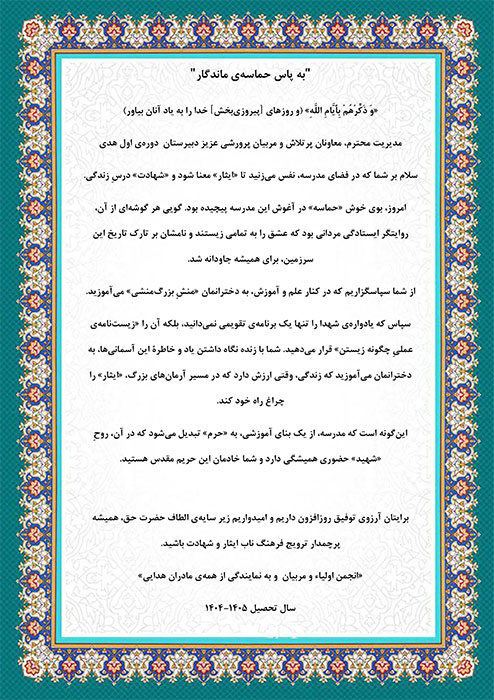 "به پاس حماسه‌ی ماندگار"
«وَ ذَکِّرْهُمْ بِأَیَّامِ اللَّهِ» (و روزهای [پیروزی‌بخش] خدا را به یاد آنان بیاور)
مدیریت محترم، معاونان پرتلاش و مربیان پرورشی عزیز دبیرستان دوره‌ی اول هدی
سلام بر شما که در فضای مدرسه، نفس می‌زنید تا «ایثار» معنا شود و «شهادت» درسِ زندگی.
امروز، بوی خوش «حماسه» در آغوش این مدرسه پیچیده بود. گویی هر گوشه‌ای از آن،
روایتگر ایستادگی مردانی بود که عشق را به تمامی زیستند و نامشان بر تارک تاریخ این
سرزمین، برای همیشه جاودانه شد.
از شما سپاسگزاریم که در کنار علم و آموزش، به دخترانمان «منشِ بزرگ‌منشی» می‌آموزید.
سپاس که یادواره‌ی شهدا را تنها یک برنامه‌ی تقویمی نمی‌دانید، بلکه آن را «زیست‌نامه‌ی
عملیِ چگونه زیستن» قرار می‌دهید. شما با زنده نگاه داشتن یاد و خاطرهٔ این آسمانی‌ها، به
دخترانمان می‌آموزید که زندگی، وقتی ارزش دارد که در مسیر آرمان‌های بزرگ، «ایثار» را
چراغ راه خود کند.
این‌گونه است که مدرسه، از یک بنای آموزشی، به «حرم» تبدیل می‌شود که در آن، روحِ
«شهید» حضوری همیشگی دارد و شما خادمان این حریم مقدس هستید.
برایتان آرزوی توفیق روزافزون داریم و امیدواریم زیر سایه‌ی الطاف حضرت حق، همیشه
پرچمدار ترویج فرهنگ ناب ایثار و شهادت باشید.
«انجمن اولیاء و مربیان و به نمایندگی از همه‌ی مادران هدایی»
سال تحصیل ۱۴۰۵-۱۴۰۴